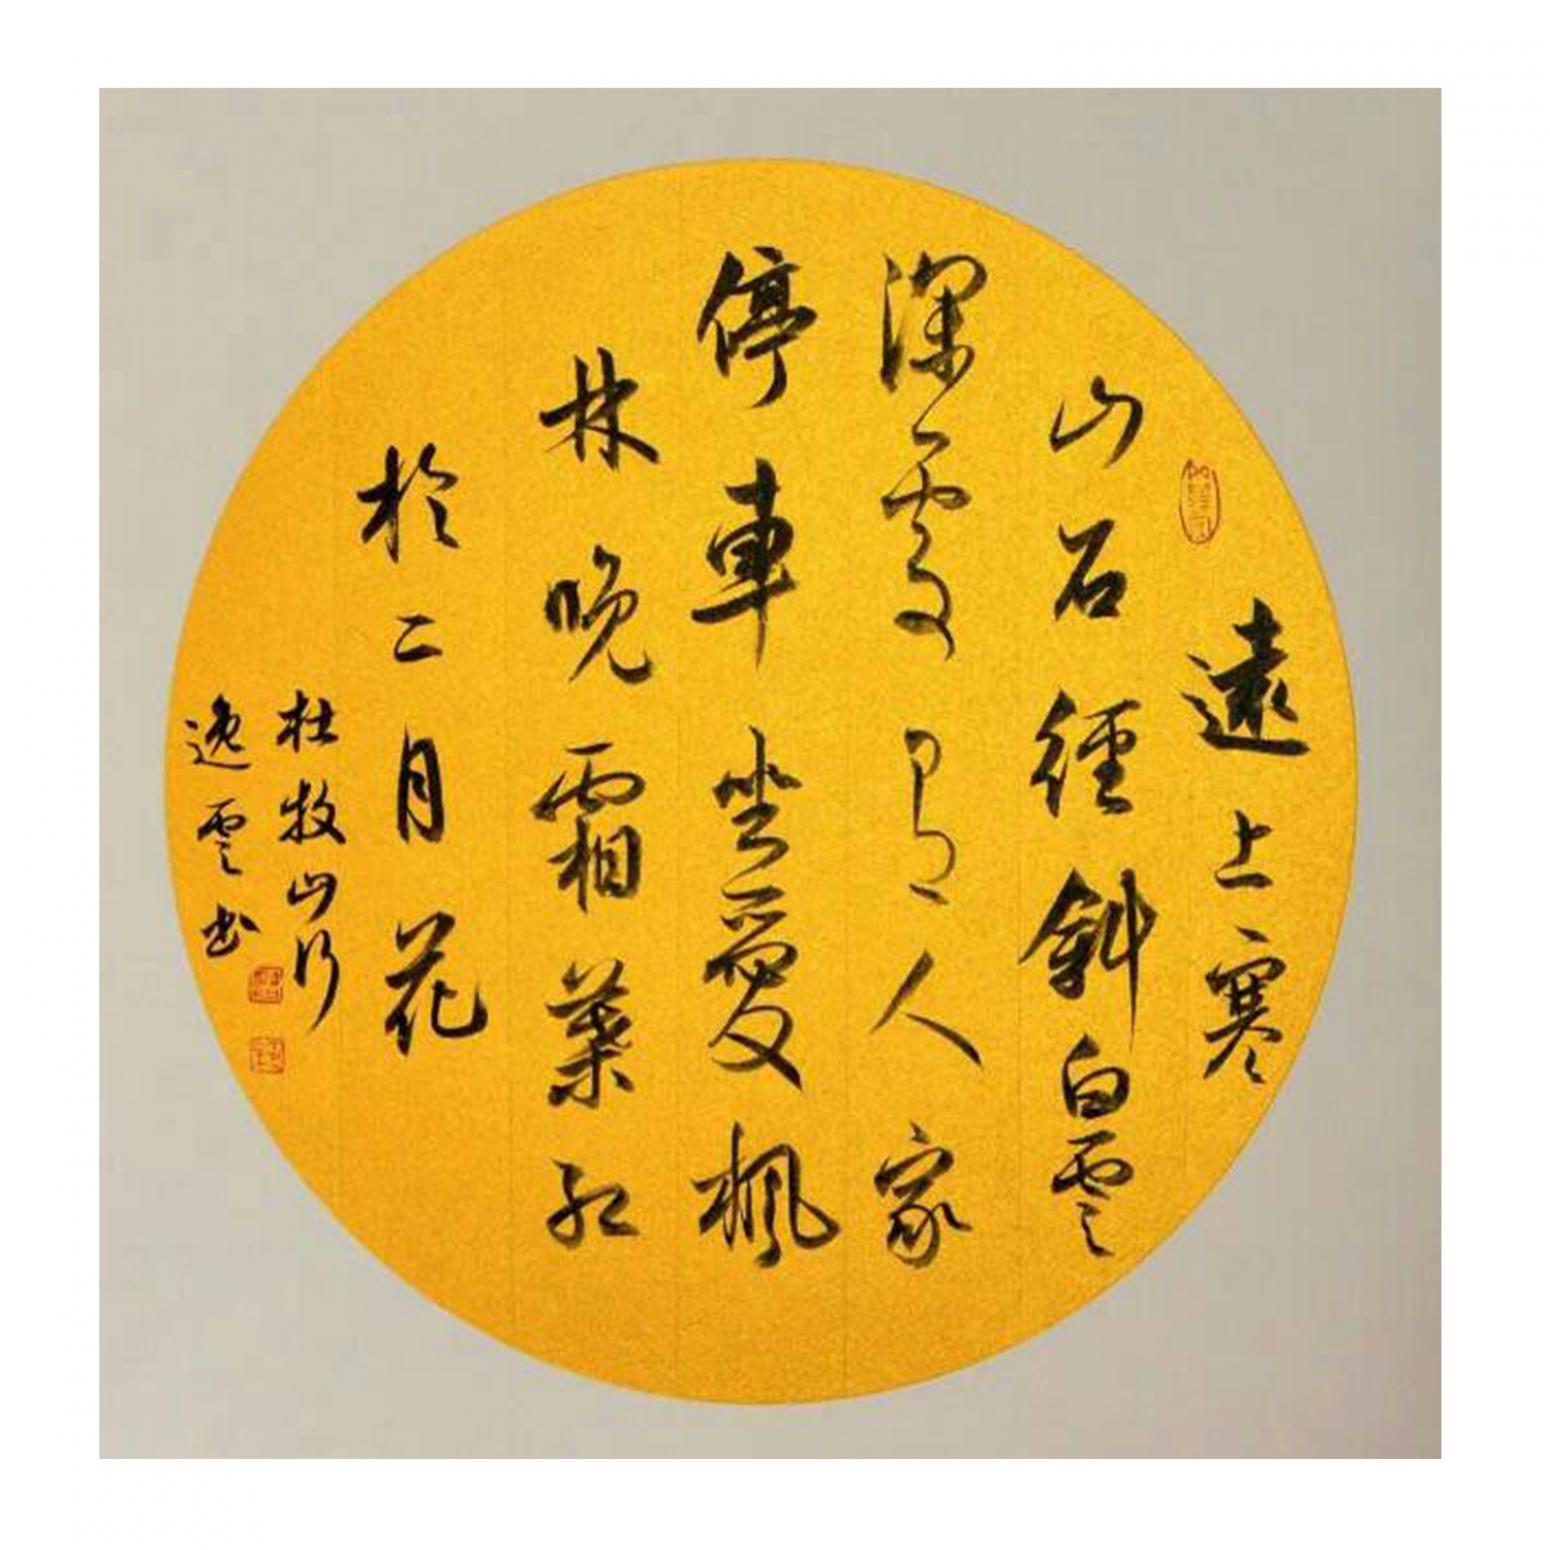 遠上寒
山石徑斜白雲
深處有人家
停車坐愛楓
林晚霜葉紅
於二月花
杜牧山行
逸雲書